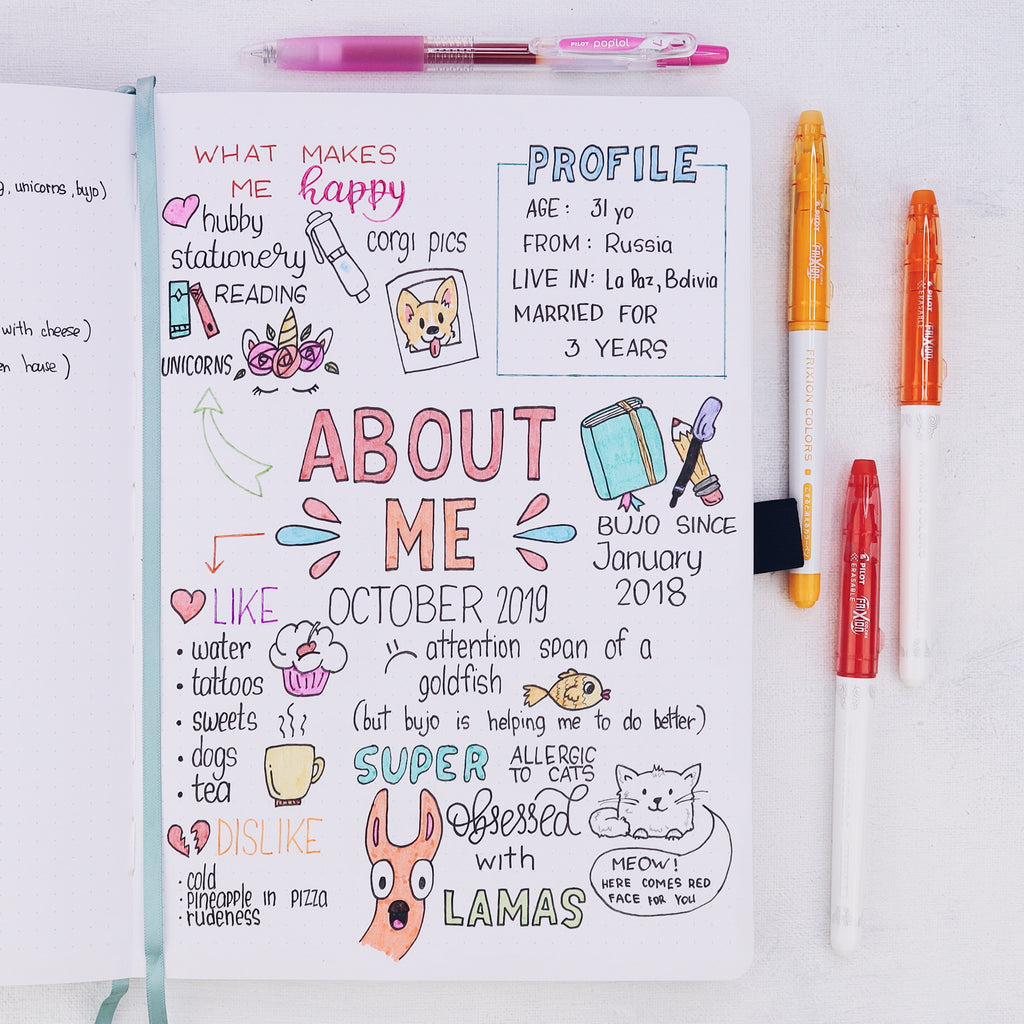 PILOT poplol 7
, unicorns, bujo)
with cheese)
house)
WHAT MAKES
ME happy
hubby
stationery
corgi pics
READING
UNICORNS
PROFILE
AGE: 31 yo
FROM: Russia
LIVE IN: La Paz, Bolivia
MARRIED FOR
3 YEARS
ABOUT
ME
OCTOBER 2019
BUJO SINCE
January
2018
LIKE
• water
• tattoos
• sweets
• dogs
• tea
DISLIKE
• cold
• pineapple in pizza
• rudeness
attention span of a
goldfish
(but bujo is helping me to do better)
SUPER
ALLERGIC
TO CATS
obsessed
with
LAMAS
MEOW!
HERE COMES RED
FACE FOR YOU
PILOT FRIXION
FRIXION COLORS
PILOT
ERASABLE FRIXION
PILOT
ERASABLE FRIXION